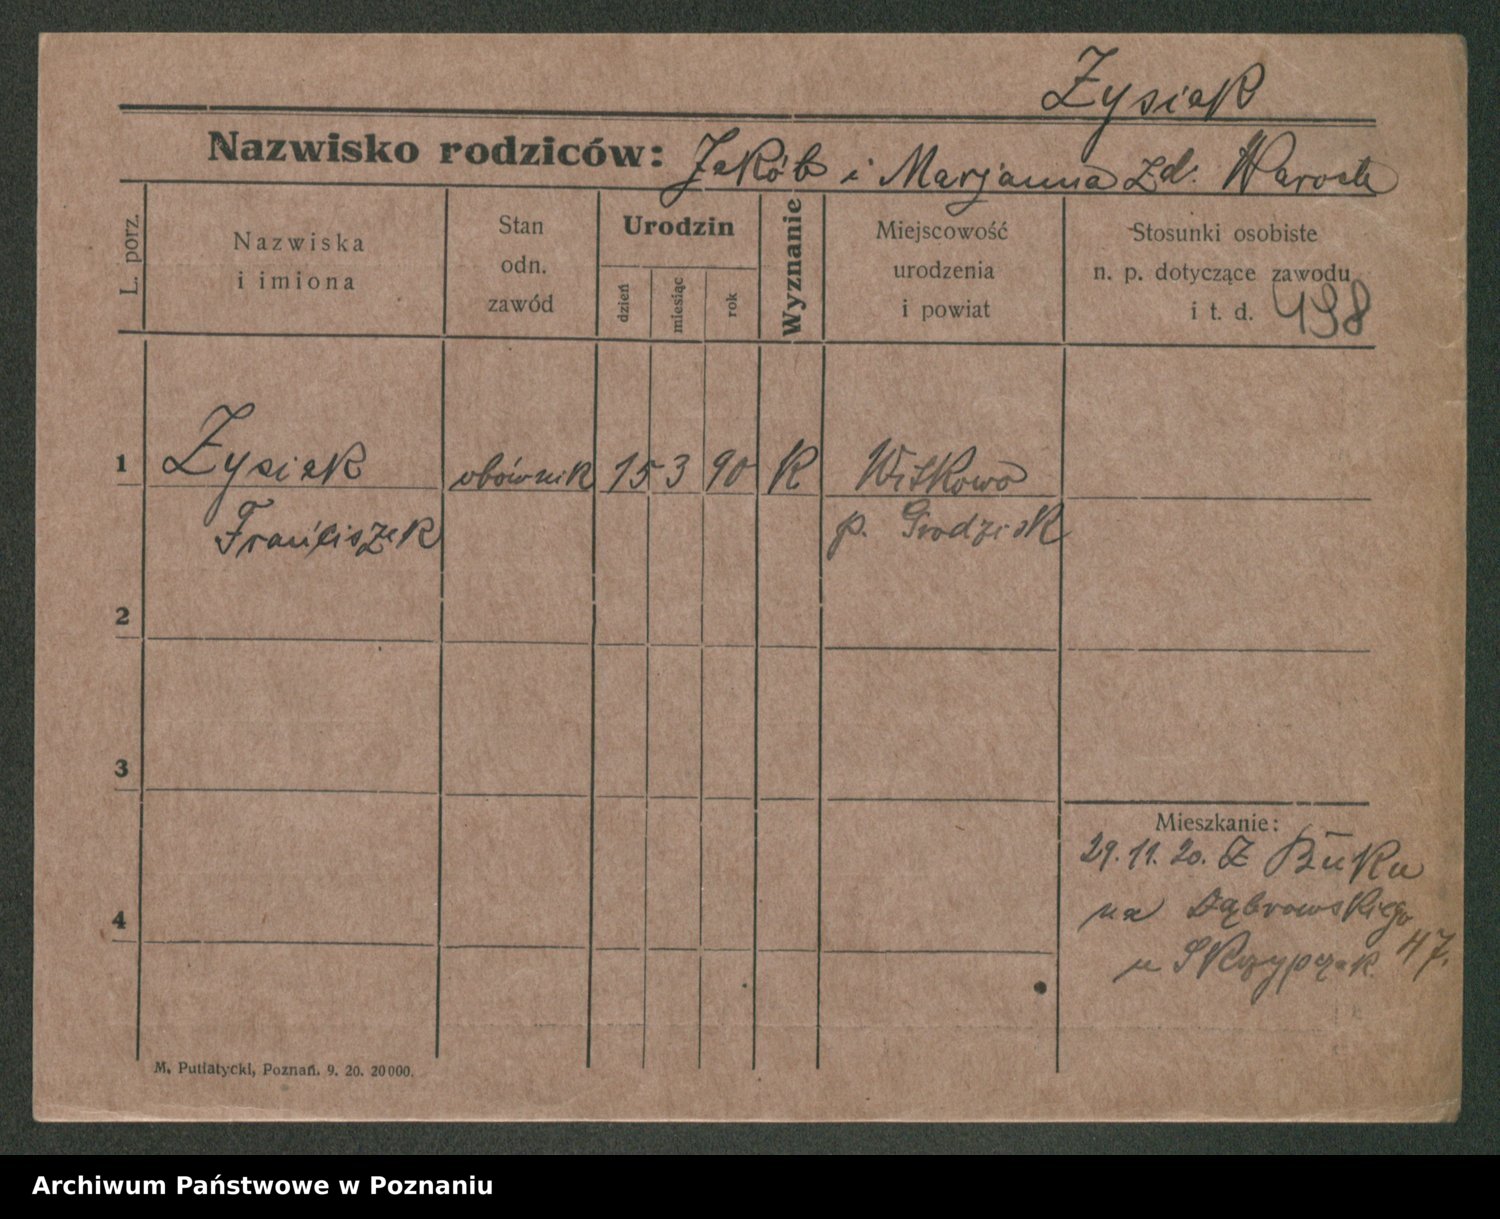 Zysiak
Nazwisko rodziców: Jakób i Marjanna zd. Warock
L. porz.
Nazwiska
i imiona
Stan
odn.
zawód
Urodzin
dzień
miesiąc
rok
Wyznanie
Miejscowość
urodzenia
i powiat
Stosunki osobiste
n. p. dotyczące zawodu
i t. d. 498
1 Zysiak obównik 15 3 90 K Witkowo
Franciszek p. Grodzisk
2
3
4
Mieszkanie:
29.11.20. Z Buku
na Dąbrowskiego
u Skrzypczak 47.
M. Putiatycki, Poznań. 9. 20. 20000.
Archiwum Państwowe w Poznaniu